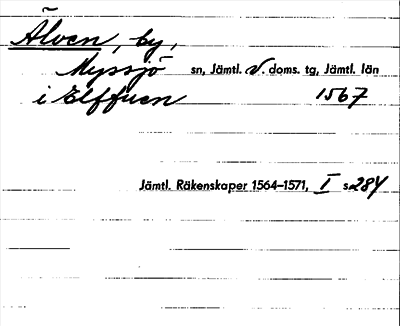 Älven, by,
Myssjö sn, Jämtl. V. doms. tg, Jämtl. län
i Elffuen 1567
Jämtl. Räkenskaper 1564–1571, I s. 284